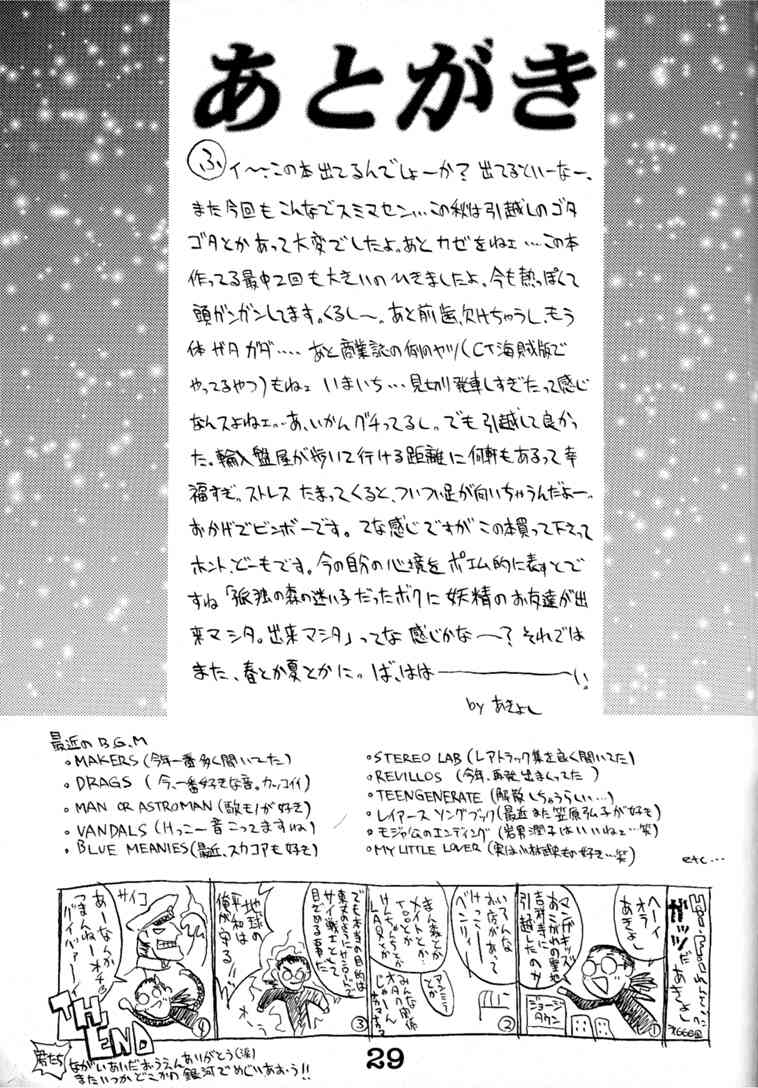 あとがき
ふィ〜、この本出てるんでしょーか? 出てるといーなー、
また今回もこんなでスミマセン…この秋は引越しのゴタ
ゴタとかあって大変でしたよ。あとカゼをねェ…この本
作ってる最中2回も大きいのひきましたよ、今も熱っぽくて
頭ガンガンしてます。くるし〜。あと前歯、欠けちゃうし、もう
体ガタガタ‥‥ あと商業誌の例のヤツ(CT海賊版で
やってるやつ)もねェ いまいち… 見切り発車しすぎたって感じ
なんスよねェ…あ、いかんグチってるし。でも引越して良かっ
た。輸入盤屋が歩いて行ける距離に何軒もあるって幸
福すぎ。ストレスたまってくると、ついつい足が向いちゃうんだよー。
おかげでビンボーです。てな感じですがこの本買って下さって
ホントどーもです。今の自分の心境をポエム的に表すとで
すね「孤独の森の迷い子だったボクに妖精のお友達が出
来マシタ。出来マシタ」ってな感じかな〜? それでは
また、春とか夏とかに。ば、はは――――い。
by あきよし
最近のB.G.M
◦MAKERS(今年一番多く聞いてた)
◦DRAGS (今、一番好きな音。カッコイイ)
◦MAN OR ASTROMAN(敵モノが好き)
◦VANDALS(けっこー音こってますね)
◦BLUE MEANIES(最近、スカコアも好き)
◦STEREO LAB(レアトラック集を良く聞いてた)
◦REVILLOS(今年、再発出まくってた)
◦TEENGENERATE(解散しちゃうらしい…)
◦レイアース ソングブック(最近また笠原弘子が好も)
◦モジャ公のエンディング(岩男潤子はいいねェ…笑)
◦MY LITTLE LOVER(実は小林武史も好き…笑)
etc…
ガッツだあきよし
オ666回
ヘーイ
オラ
あきよし
マンガキッズ
あこがれの聖地
吉祥寺に
引越したのサ
ジョージ
タウン
①
いろんな
お店があって
けっこー
ベンリィ!
②
まんがの森とか
メイトとか
とか
みんな
オタク関係
じゃ
でも本当の目的は
サイ戦士として
目ざめる事だ
地球の
平和は
俺が守る!!
③
サイコ
あーなんか
つまんねーオチ
グィバァー!
④
TH END
君たち
ながいあいだおうえんありがとう(涙)
またいつかどこかの銀河でめぐりあおう!!
29